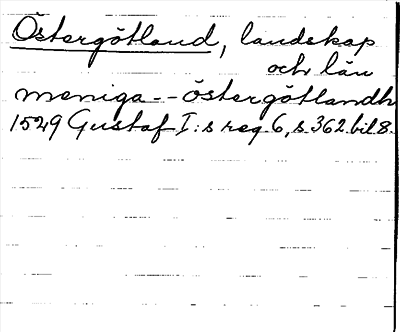 Östergötland, landskap
och län
meniga -- östergötlandh
1529 Gustaf I:s reg. 6, s. 362. bil 8.